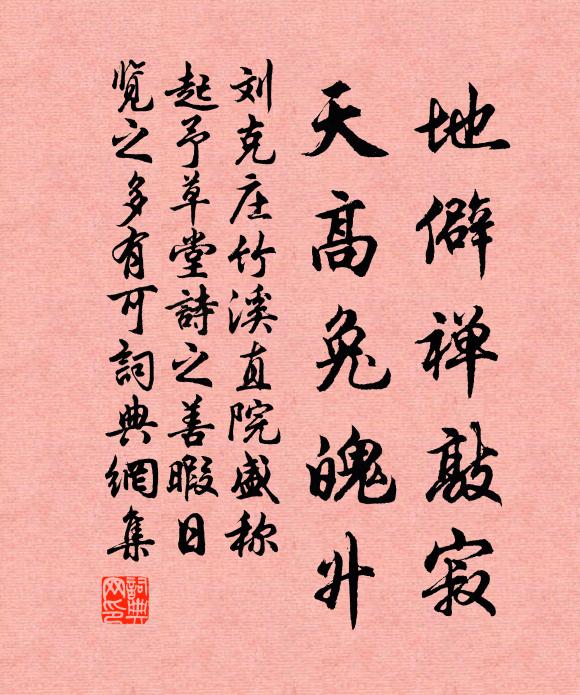 地僻禅敲寂
天高兔魄升
刘克庄竹溪直院盛称
起予草堂詩之善暇日
览之多有可詞典網集
詞典網印